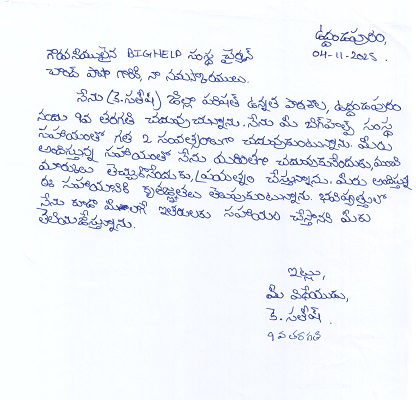 ఉద్దండపురం,
04-11-2025.
గౌరవనీయులైన BIGHELP సంస్థ చైర్మన్
చాంద్ పాషా గారికి, నా నమస్కారములు.
నేను (కె.సతీష్) జిల్లా పరిషత్ ఉన్నత పాఠశాల, ఉద్దండపురం
నందు 9వ తరగతి చదువుచున్నాను. నేను మీ బిగ్‌హెల్ప్ సంస్థ
సహాయంతో గత 2 సంవత్సరాలుగా చదువుకుంటున్నాను. మీరు
అందిస్తున్న సహాయంతో నేను చదువుకునేందుకు, మంచి
మార్కులు తెచ్చుకొనేందుకు, ప్రయత్నం చేస్తున్నాను. మీరు అందిస్తున్న
ఈ సహాయానికి కృతజ్ఞతలు తెలుపుకుంటున్నాను. భవిష్యత్తులో
నేను కూడా మీలాగే ఇతరులకు సహాయం చేస్తానని మీకు
తెలియజేస్తున్నాను.
ఇట్లు,
మీ విధేయుడు,
కె. సతీష్.
9వ తరగతి